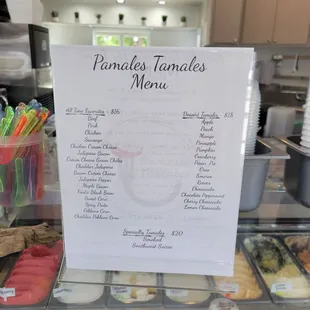 Pamales Tamales
Menu
All Time Favorites $16
Beef
Pork
Chicken
Sausage
Chicken Cream Cheese
Jalapeno Bacon
Cream Cheese Green Chile
Cheddar Jalapeno
Bacon Cream Cheese
Jalapeno Pepper
Maple Bacon
Black Bean
Sweet Corn
Spicy Pork
Poblano Corn
Cheddar Poblano Corn
Dessert Tamales $18
Apple
Peach
Mango
Pineapple
Pumpkin
Cranberry
Pecan Pie
Raisin
Chocolate
Chocolate Peppermint
Cherry Cheesecake
Lemon Cheesecake
Specialty Tamales $20
Brisket
Southwest